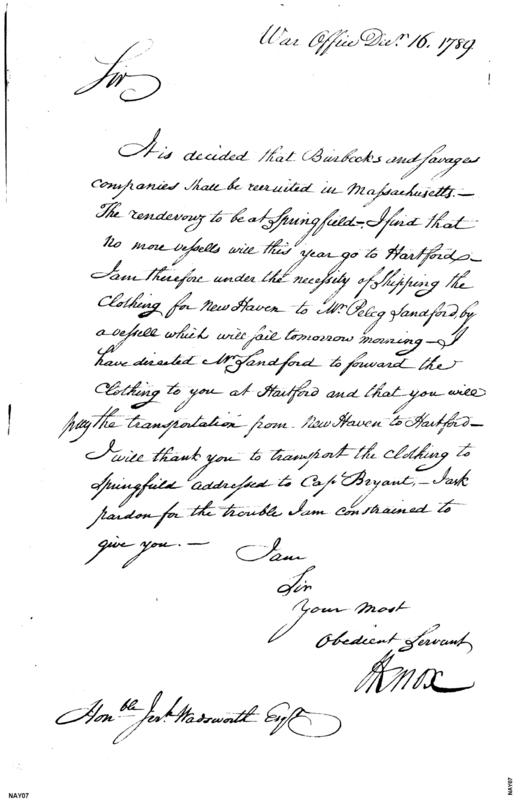 War Office Decr. 16. 1789.
Sir
It is decided that Burbecks and Savages
companies shall be recruited in Massachusetts.—
The rendevouz to be at Springfield—I find that
no more vessells will this year go to Hartford—
I am therefore under the necessity of shipping the
Clothing for New Haven to Mr. Peleg Sandford, by
a vessell which will sail tomorrow morning—I
have directed Mr Sandford to forward the
Clothing to you at Hartford and that you will
pay the transportation from New Haven to Hartford—
I will thank you to transport the Clothing to
Springfield addressed to Capt Bryant,—I ask
pardon for the trouble I am constrained to
give you.—
I am
Sir
Your most
Obedient Servant
HKnox
Honble Jerh Wadsworth Esqr
NAY07
NAY07